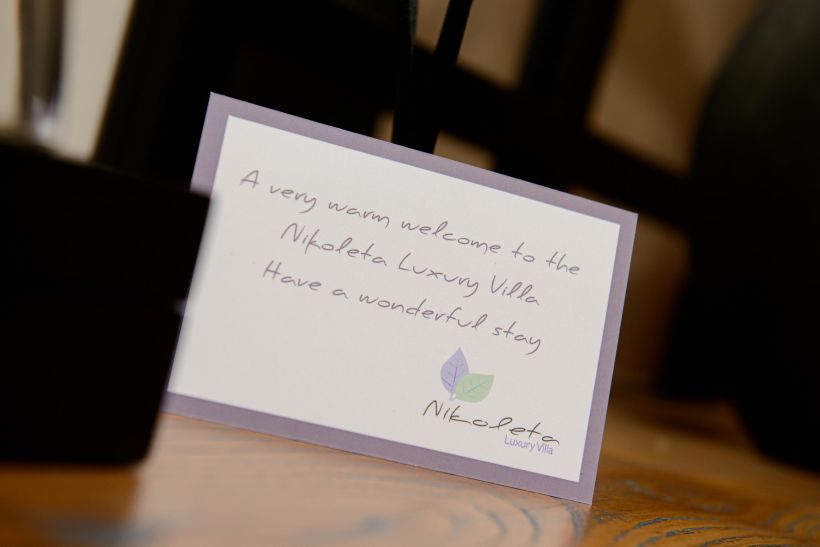 A very warm welcome to the
Nikoleta Luxury Villa
Have a wonderful stay
Nikoleta
Luxury Villa